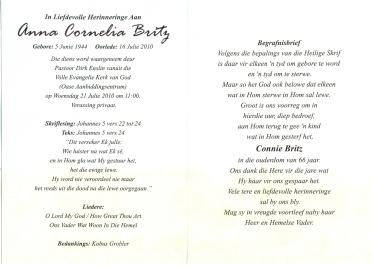 In Liefdevolle Herinneringe Aan
Anna Cornelia Britz
Gebore: 5 Junie 1944 Oorlede: 16 Julie 2010
Die diens word waargeneem deur
Pastoor Dirk Enslin vanuit die
Volle Evangelie Kerk van God
(Oase Aanbiddingsentrum)
op Woensdag 21 Julie 2010 om 11:00.
Verassing privaat.
Skriflesing: Johannes 5 vers 22 tot 24
Teks: Johannes 5 vers 24
"Dit verseker Ek julle:
Wie luister na wat Ek sê,
en in Hom glo wat My gestuur het,
het die ewige lewe.
Hy word nie veroordeel nie maar
het reeds uit die dood na die lewe oorgegaan."
Liedere:
O Lord My God / How Great Thou Art
Ons Vader Wat Woon In Die Hemel
Bedankings: Kobus Grobler
Begrafnisbrief
Volgens die bepalings van die Heilige Skrif
is daar vir elkeen 'n tyd om gebore te word
en 'n tyd om te sterwe.
Maar so het God ook belowe dat elkeen
wat in Hom sterwe in Hom sal lewe.
Groot is ons voorreg om in
hierdie uur, diep bedroef,
aan Hom terug te gee 'n kind
wat in Hom gesterf het,
Connie Britz
in die ouderdom van 66 jaar.
Ons dank die Here vir die jare wat
Hy haar vir ons gespaar het.
Vele tere en liefdevolle herinneringe
sal by ons bly.
Mag sy in vreugde voortleef naby haar
Heer en Hemelse Vader.